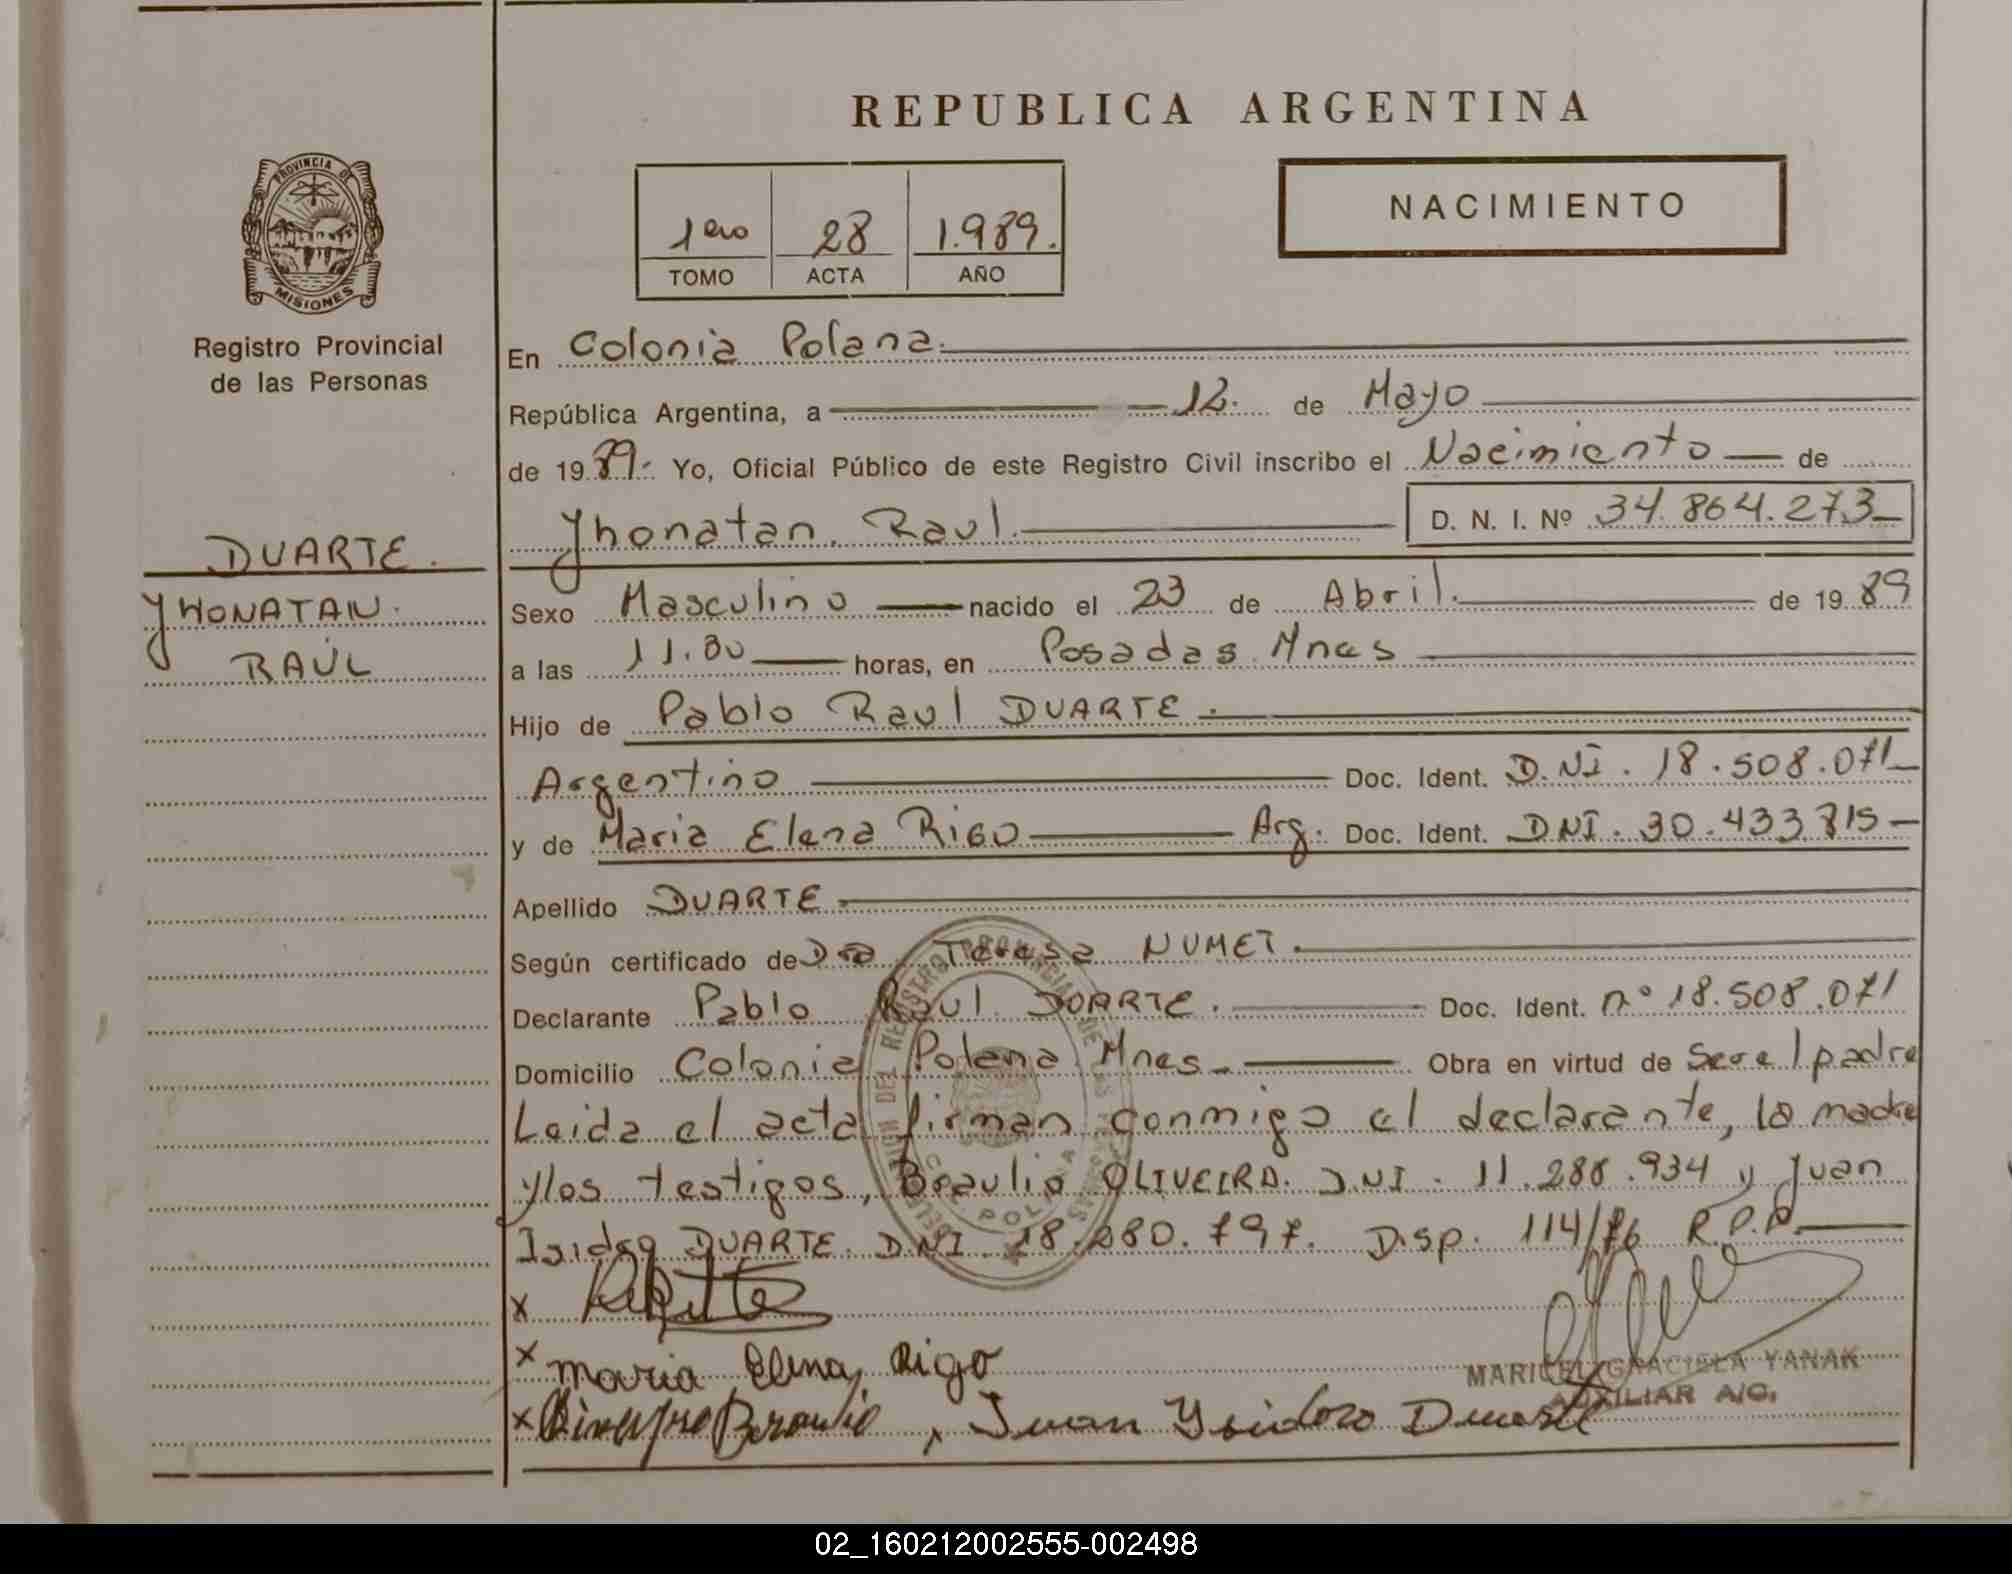 REPUBLICA ARGENTINA
PROVINCIA DE
MISIONES
Registro Provincial
de las Personas
1ero 28 1.989.
TOMO ACTA AÑO
NACIMIENTO
DUARTE.
YHONATAN.
RAÚL
En Colonia Polana.
República Argentina, a 12. de Mayo
de 1989.- Yo, Oficial Público de este Registro Civil inscribo el Nacimiento de
Yhonatan. Raul. D. N. I. Nº 34.864.273
Sexo Masculino nacido el 23 de Abril. de 1989
a las 11.30 horas, en Posadas Mnes
Hijo de Pablo Raul DUARTE.
Argentino Doc. Ident. D.NI. 18.508.071
y de Maria Elena RIGO Arg. Doc. Ident. DNI. 30.433.815
Apellido DUARTE
Según certificado de Dra Teresa NUMET.
Declarante Pablo Raul DUARTE. Doc. Ident. nº 18.508.071
Domicilio Colonia Polana Mnes. Obra en virtud de ser el padre
Leida el acta firman conmigo el declarante, la madre
y los testigos, Braulio OLIVEIRA. D.NI. 11.288.934 y Juan
Isidro DUARTE. D.NI. 18.280.797. Disp. 114/76 R.P.P.
x
x Maria Elena Rigo
x Braulio, Juan Ysidoro Duarte
MARICEL GRACIELA YANAK
AUXILIAR A/C.
02_160212002555-002498